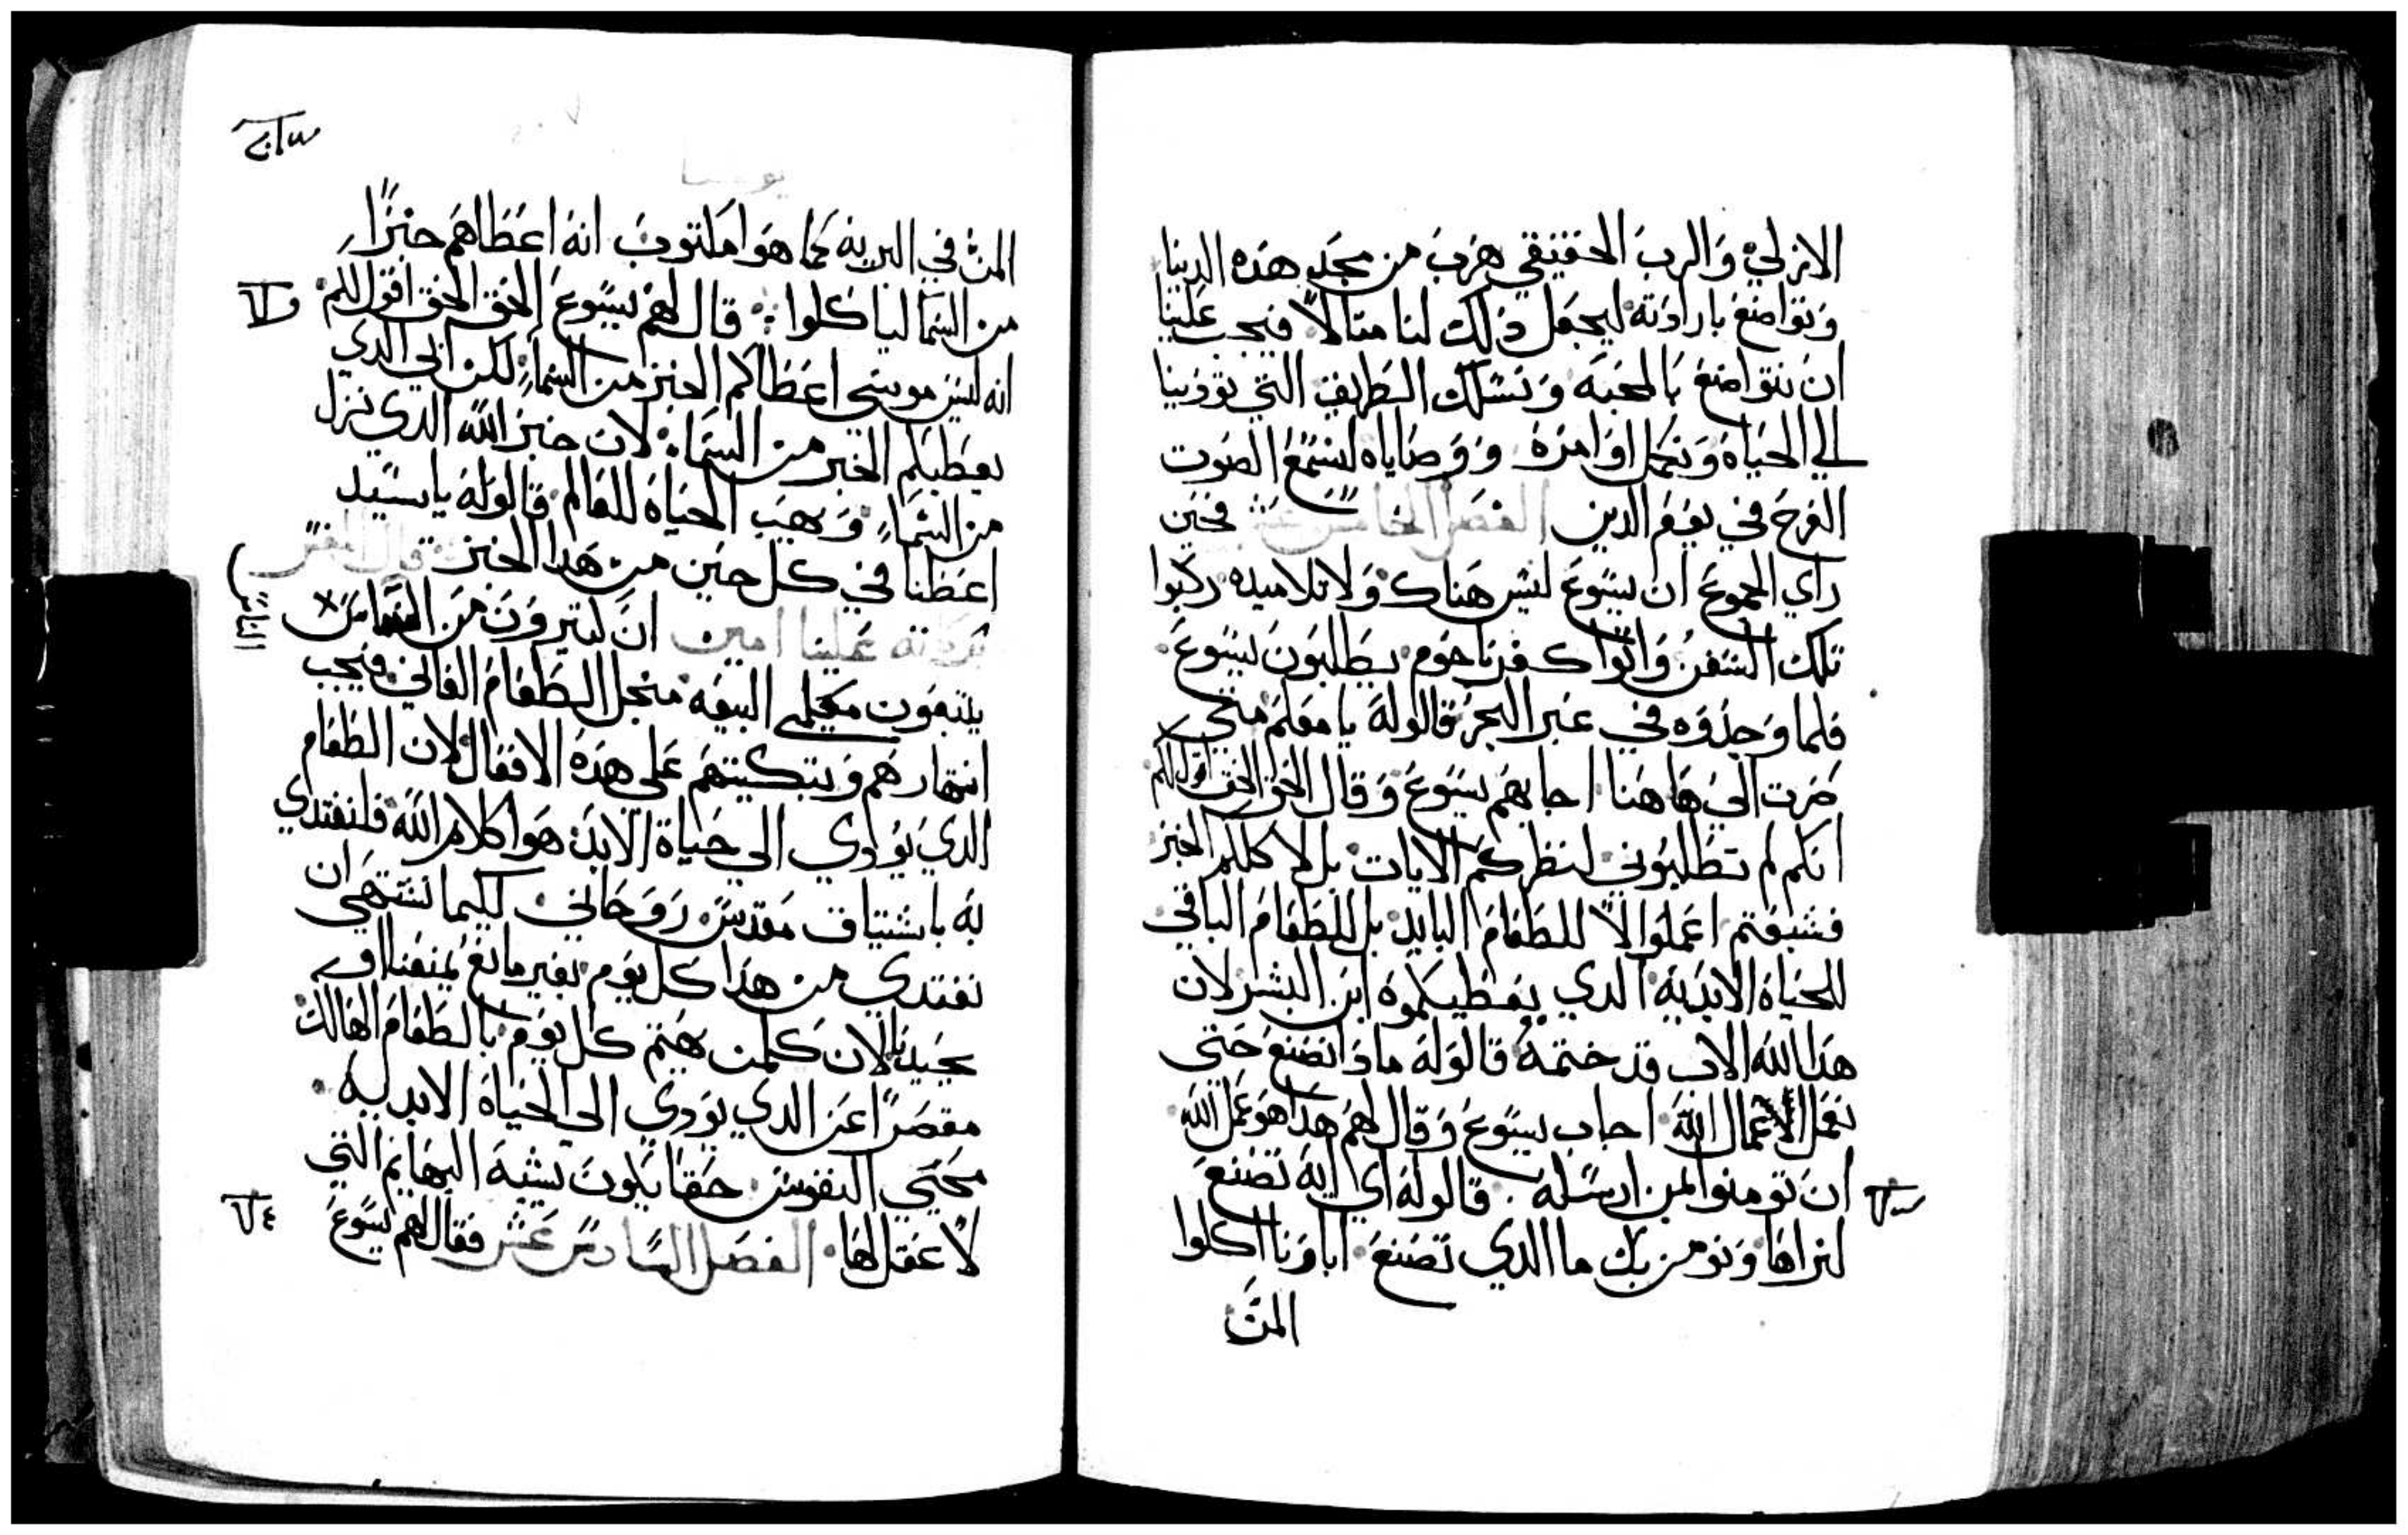 الازلي والرب الحقيقي هرب من مجد هذه الدنيا
وتواضع بارادته ليجعل ذلك لنا مثالا فيجب علينا
ان نتواضع بالمحبه ونسلك الطريق التي تودينا
الي الحياه ونكمل اوامره ووصاياه لنسمع الصوت
الفرح في يوم الدين الفصل الخامس عشر فحين
راي الجموع ان يسوع ليس هناك ولا تلاميده ركبوا
تلك السفن واتوا كفرناحوم يطلبون يسوع
فلما وجدوه في عبر البحر قالوله يا معلم متي
صرت الي هاهنا اجابهم يسوع وقال الحق الحق اقول لكم
انكم لم تطلبوني لنظركم الايات بل لاكلكم الخبز
فشبعتم اعملوا لا للطعام البايد بل للطعام الباقي
للحياه الابديه الدي يعطيكموه ابن البشر لان
هدا الله الاب قد ختمه قالوله مادا نصنع حتى
نعمل اعمال الله اجاب يسوع وقال لهم هدا هو عمل الله
ان تومنوا بمن ارسله قالوله اي ايه تصنع
لنراها ونومن بك ما الدي تصنع اباونا اكلوا
المن
يوحنا
المن في البريه كما هوا مكتوب انه اعطاهم خبزا
من السما لياكلوا قال لهم يسوع الحق الحق اقول لكم
انه ليس موسي اعطاكم الخبز من السما لكن ابي الدي
يعطيكم الخبز من السما لان خبز الله الدي نزل
من السما وهب الحياه للعالم قالوله يا سيد
اعطنا في كل حين من هدا الخبز قال المفسر
بركاته علينا امين ان كتيرون من الناس
يتبعون معلمي البيعه منجل الطعام الفاني فيجب
انتهارهم وتبكيتهم على هده الافعال لان الطعام
الدي يودي الى حياة الابد هوا كلام الله فلنغتدي
به باشتياق مقدس روحاني لكيما نشتهي ان
نغتدي من هدا كل يوم بغير مانع يمنعنا او
يجيدنا لان كلمن يهتم كل يوم بالطعام الهالك
مقصرا عن الدي يودي الى الحياه الابديه
محيي النفوس حقا يكون يشبه البهايم التي
لا عقل لها الفصل السادس عشر فقال لهم يسوع